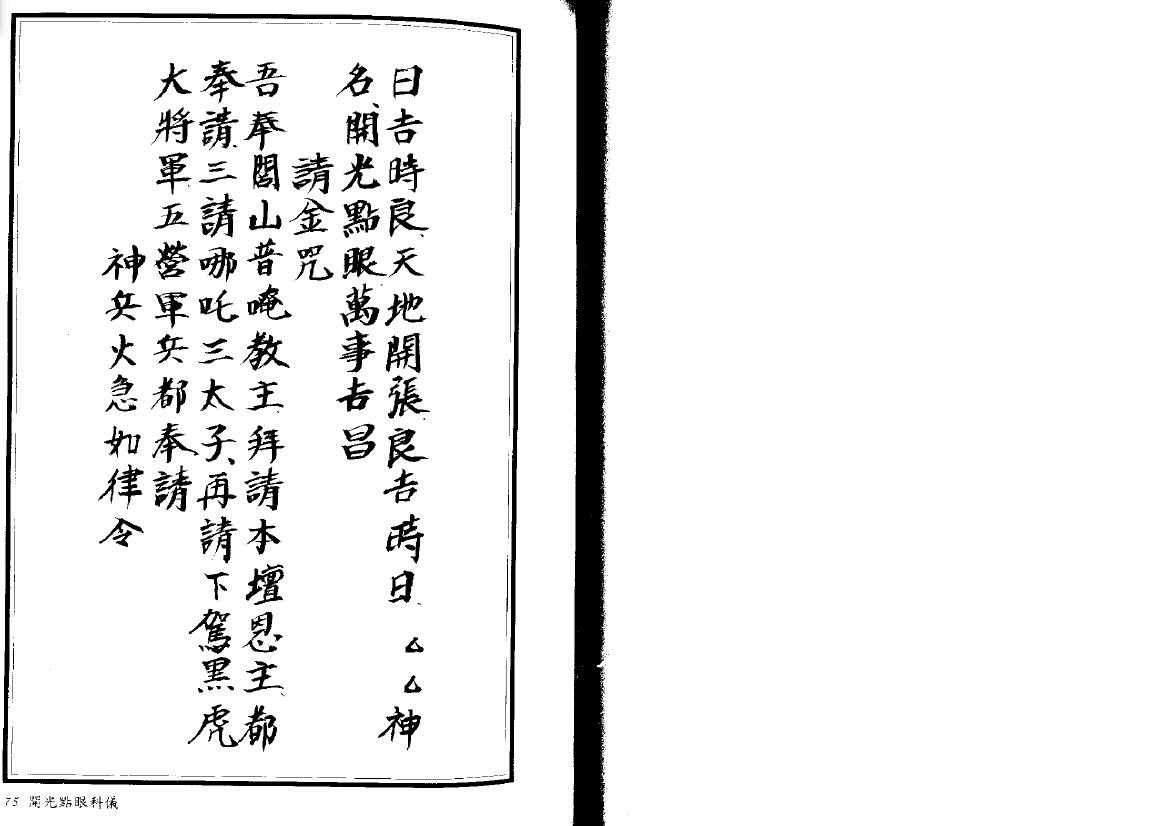 日吉時良、天地開張、良吉時日、△△神
名、開光點眼萬事吉昌
請金咒
吾奉閭山昔唵教主、拜請本壇恩主、都
奉請、三請哪吒三太子、再請下駕黑虎
大將軍五營軍兵都奉請
神兵火急如律令
75 開光點眼科儀